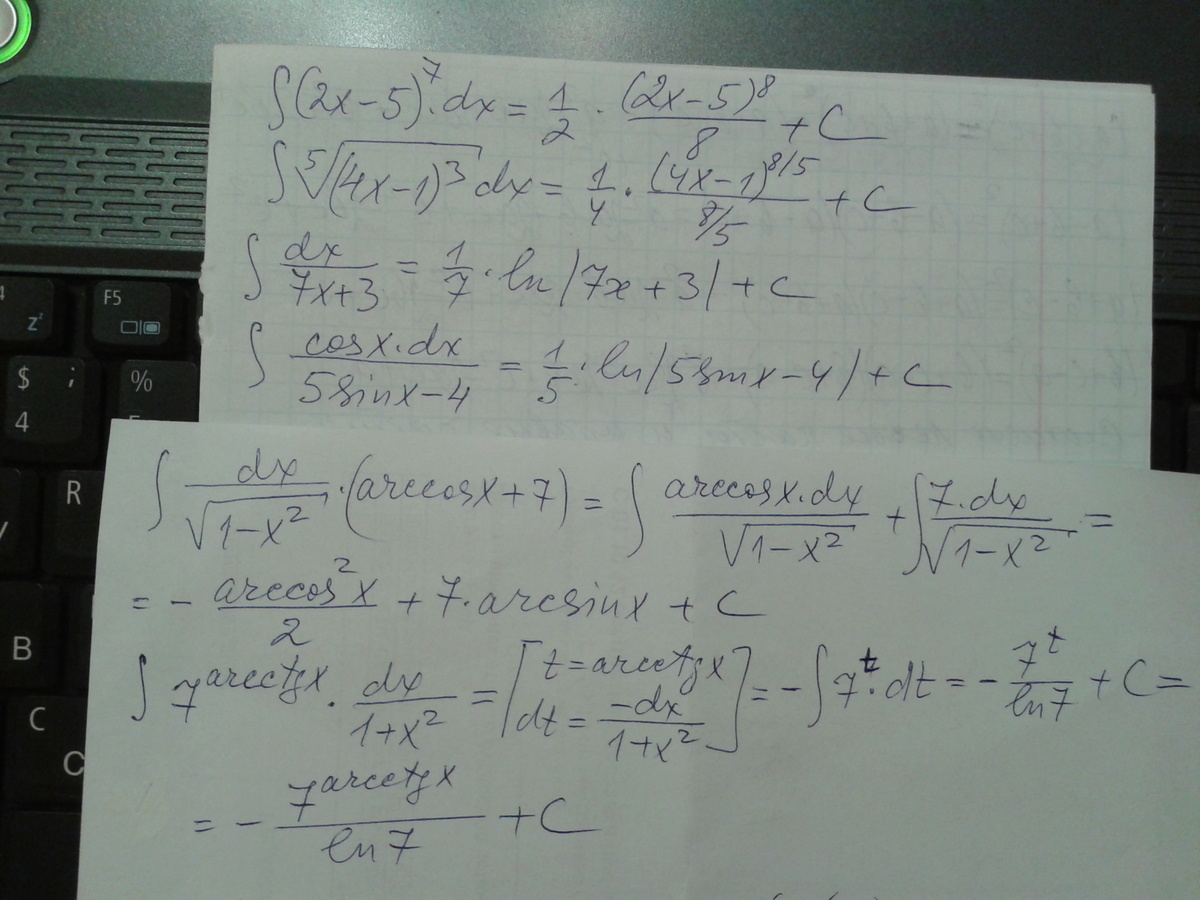 ∫(2x-5)⁷·dx = 1/2 · (2x-5)⁸/8 + C
∫⁵√(4x-1)³ dx = 1/4 · (4x-1)^(8/5)/(8/5) + C
∫ dx/(7x+3) = 1/7 · ln|7x+3| + C
∫ cosx·dx/(5sinx-4) = 1/5 · ln|5sinx-4| + C
∫ dx/√(1-x²) · (arccosx+7) = ∫ arccosx·dx/√(1-x²) + ∫ 7·dx/√(1-x²) =
= - arccos²x/2 + 7·arcsinx + C
∫ 7^(arcctgx) · dx/(1+x²) = [t = arcctgx dt = -dx/(1+x²)] = -∫7^t·dt = - 7^t/ln7 + C =
= - 7^(arcctgx)/ln7 + C
F5
z²
$ ;
4
%
R
B
C
C